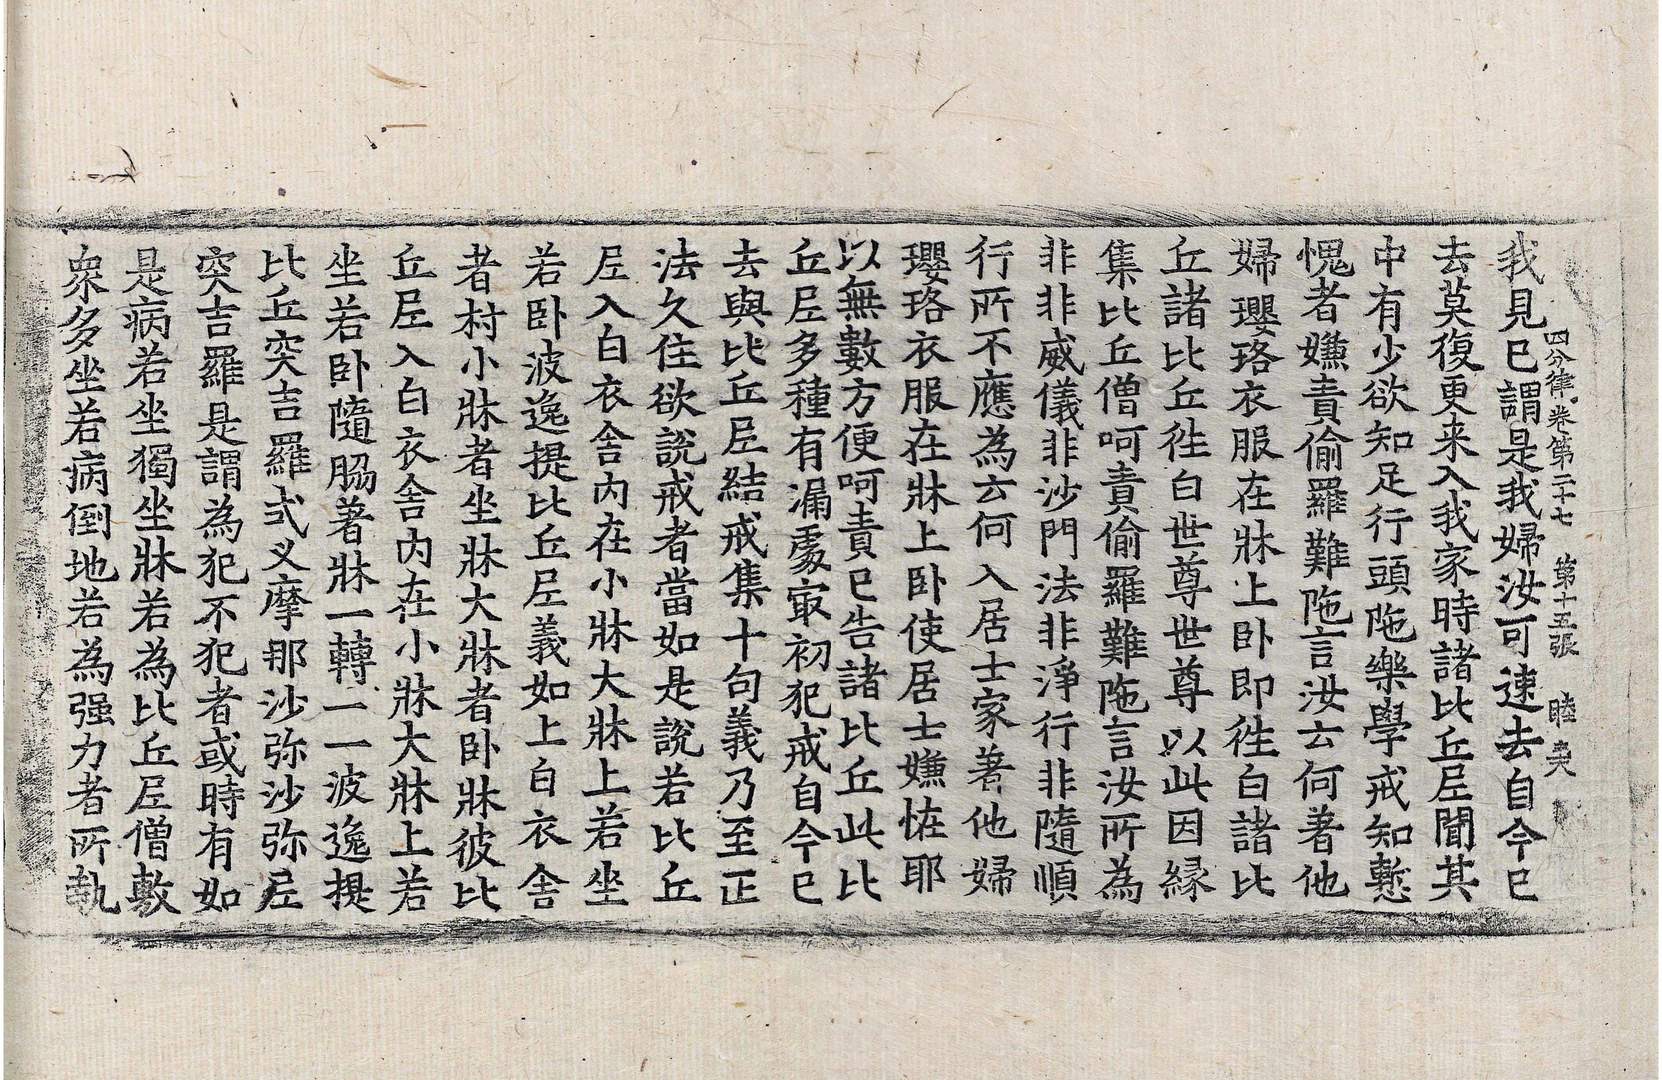 四分律卷第二十七 第十五張 睦夫
我見已謂是我婦汝可速去自今已
去莫復更来入我家時諸比丘尼聞其
中有少欲知足行頭陁樂學戒知慙
愧者嫌責偷羅難陁言汝云何著他
婦瓔珞衣服在牀上卧即徃白諸比
丘諸比丘徃白世尊世尊以此因緣
集比丘僧呵責偷羅難陁言汝所為
非非威儀非沙門法非淨行非隨順
行所不應為云何入居士家著他婦
瓔珞衣服在牀上卧使居士嫌恠耶
以無數方便呵責已告諸比丘此比
丘尼多種有漏處㝡初犯戒自今已
去與比丘尼結戒集十句義乃至正
法久住欲說戒者當如是說若比丘
尼入白衣舍内在小牀大牀上若坐
若卧波逸提比丘尼義如上白衣舍
者村小牀者坐牀大牀者卧牀彼比
丘尼入白衣舍内在小牀大牀上若
坐若卧隨脇著牀一轉一一波逸提
比丘突吉羅式叉摩那沙弥沙弥尼
突吉羅是謂為犯不犯者或時有如
是病若坐獨坐牀若為比丘尼僧敷
衆多坐若病倒地若為强力者所執